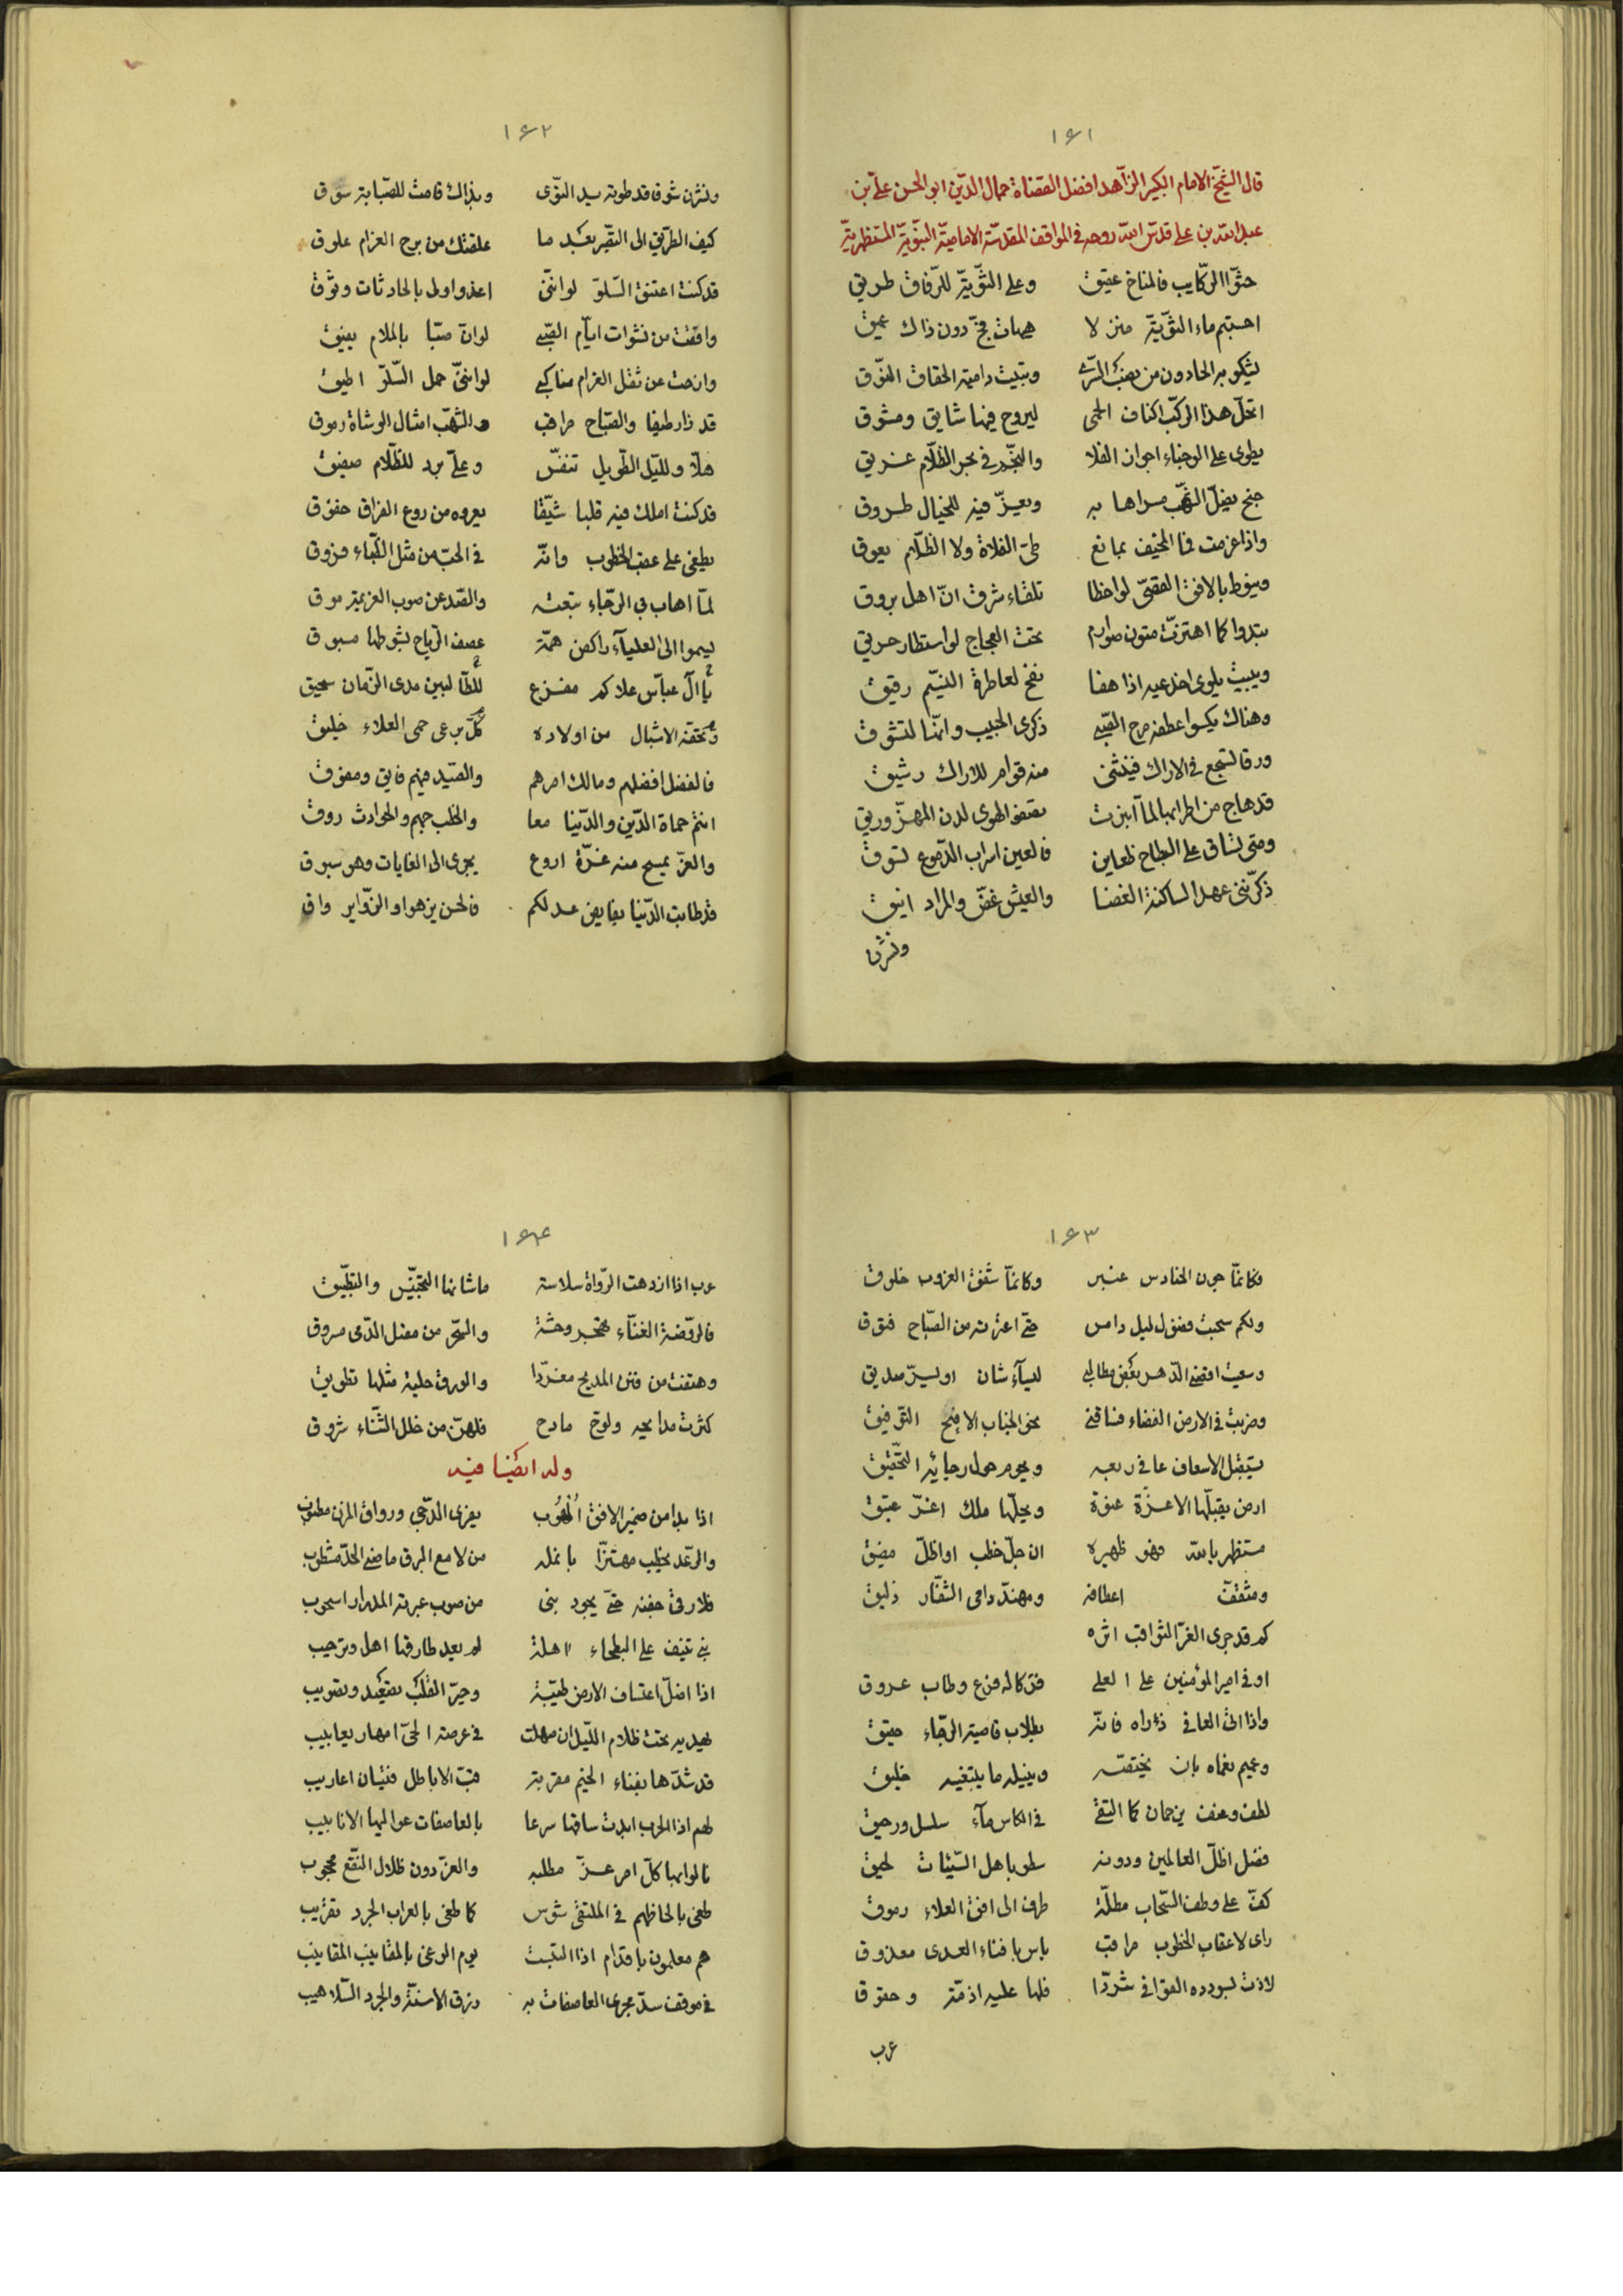 ١٤١
قال الشيخ الامام الكبير الزاهد افضل القضاة جمال الدين ابو الحسن علي بن
عبد الله بن علي قدس الله روحه في المواقف المقدسة الامامية النبوية المستظهرية
حثوا الركايب فالمناخ عتيق وعلى الثوية للرفاق طريق
ماء الثوية منزلا هيهات فج دون ذاك عميق
يشكو به الحادون من السرى وتبيت دامية الحقاق النوق
اتخل هذا الركب اكناف الحمى ليروح فيها شايق ومشوق
يطوى على الوجناء اجواز الفلا والنجم في بحر الظلام غريق
جنح يضل الشهب مسراها به ويعز فيه للخيال طروق
واذا عزمت فما المخيف بمانع طي الفلاة ولا الظلام يعوق
بالافق القصي لواحظا تلقاء شرق ان اهل بروق
تبدوا كما اهتزت متون صوارم تحت العجاج لواستطار حريق
ويبيت يلوى اخدعيه اذا هفا نفح لعاطرة النسيم رقيق
وهناك يكسوا عطفه مرح الصبى ذكرى الحبيب وانما لتشوق
ورقا تسجع في الاراك فينثنى منه قوام للاراك رشيق
قد هاج من اطرابها لما انبرت الهوى لدن المهز وريق
ومتى تساق على البطاح ظعاين فالعين اسراب الدموع تسوق
ذكرتنى عهد الساكنة الغضا والعيش غض والمراد انيق
ونشرن
١٤٢
ونشرن شوقا قد طوته يد النوى وبذاك قامت للصبابة سوق
كيف الطريق الى التصبر بعد ما علقتك من برح الغرام علوق
قد كنت اعتنق السلو لو انني اغدوا ولى بالحادثات وثوق
وافقت من نشوات ايام الصبى لو ان صبا بالملام يفيق
وازحت عن ثقل الغرام مناكبى لو اننى حمل السلو اطيق
قد زار طيفا والصباح مراقب والشهب امثال الوشاة رموق
هلا ولليل الطويل تنفس وعلى برد للظلام صفيق
قد كنت املك فيه قلبا شيقا يعروه من روع الفراق خفوق
يطفى على عقب الخطوب وانه في الحب من مثل الكباء فروق
لما اهاب بي الرجاء تبعته والصد عن صوب العزيمة موق
ليسموا الى العلياء راكض همة عصف الرياح بشوطها مسبوق
يا آل عباس علاكم مفزع للطالبين مدى الزمان سحيق
وتحقنه الاشبال من اولاده كل يرعى حمى العلاء خليق
فالفضل افضلهم ومالك امرهم والصيد منهم فايق ومفوق
انتم حماة الدين والدنيا معا والخطب جهم والحوادث روق
والعز يمسح منه غرة اروع يجرى الى الغايات وهو سبوق
قد طابت الدنيا بفايض عدلكم فالحسن يزهوا والزواير واق
١٤٣
فكانما جون الحنادس عنبر وكانما شفق الغروب خلوق
ولكم سحبت فضول ليل دامس حتى اعترته من الصباح فتوق
وسعيت اقتضى الدهر بعض مطالبي لعياء شان او ليسر صديق
وضربت في الارض الفضاء فساقنى نحو الجناب الافيح التوفيق
يستقبل الاسعاف عافى ربعه ويحوم حول رجائه التحقيق
ارض يقبلها الاعزة عنوة ويحلها ملك اغر عتيق
مستظهر بالله فهو ظهيره ان جل خطب او اظل مضيق
ومثقف اعطافه ومهند دامى الشفار ذليق
كم قد جرى الغر الثواقب اثره
اوفى امير المؤمنين على العلى فزكا له فرع وطاب عروق
واذا اتى العافى ذراه فانه بطلاب قاصية الرجاء حقيق
وعميم نعماه بان يختصه وينيله ما يبتغيه خليق
لطف وعنف يزجان كما التقى في الكاس ماء سلسل ورحيق
فضل اظل العالمين ودونه سطو باهل السيئات لحيق
كف على وطف السحاب مطلة طرف الى افق العلاء رموق
راى لاعقاب الخطوب مراقب باس بافناء العدى معذوق
لاذت بسودده القوافى شردا فلها عليه اذمة وحقوق
عرب
١٤٤
عرب اذا ازدهت الرواة سلاسة ماشانها التجنيس والتطبيق
فالروضة الغناء تخبر وحشة والسحر من مقل الدمى مسروق
وهتفت من فنن المديح مغردا والورق حلية مثلها تطويق
كثرت مدايحه ولوح مادح فلهن من خلل الثناء شروق
وله ايضا فيه
اذا بدا من ضمير الافق الهوب يفرى الدجى ورواق المزن مطنوب
والرعد يخطب مهتزا بانمله من لامع البرق ماضى الحد مشطوب
فلا رقى جفنه حتى يجود بنى من صوب عبرته المدرار اسحوب
بنى تنيف على البطحاء اهلة لم يعد طارقها اهل وترحيب
اذا اضل اعتساف الارض طيبة وحير الفلك تصعيد وتصويب
يهديه تحت ظلام الليل ان صهلت في عرصة الحى امهار يعابيب
قد شدها بفناء الخيم مقربة قب الاباطل فتيان اعاريب
لهم اذا الحرب ابدت ساقها سرعا بالعاصفات عواليها الانابيب
نالوا بها كل امر عز مطلبه والعز دون ظلال النقع محجوب
طغى بالحاظهم في الملتقى شوس كما طغى بالعراب الجرد تقريب
هم معلمون باقدام اذا التبست يوم الوغى بالمقانيب المقانيب
في موقف سد مجرى العاصفات به زرق الاسنة والجرد السلاهيب